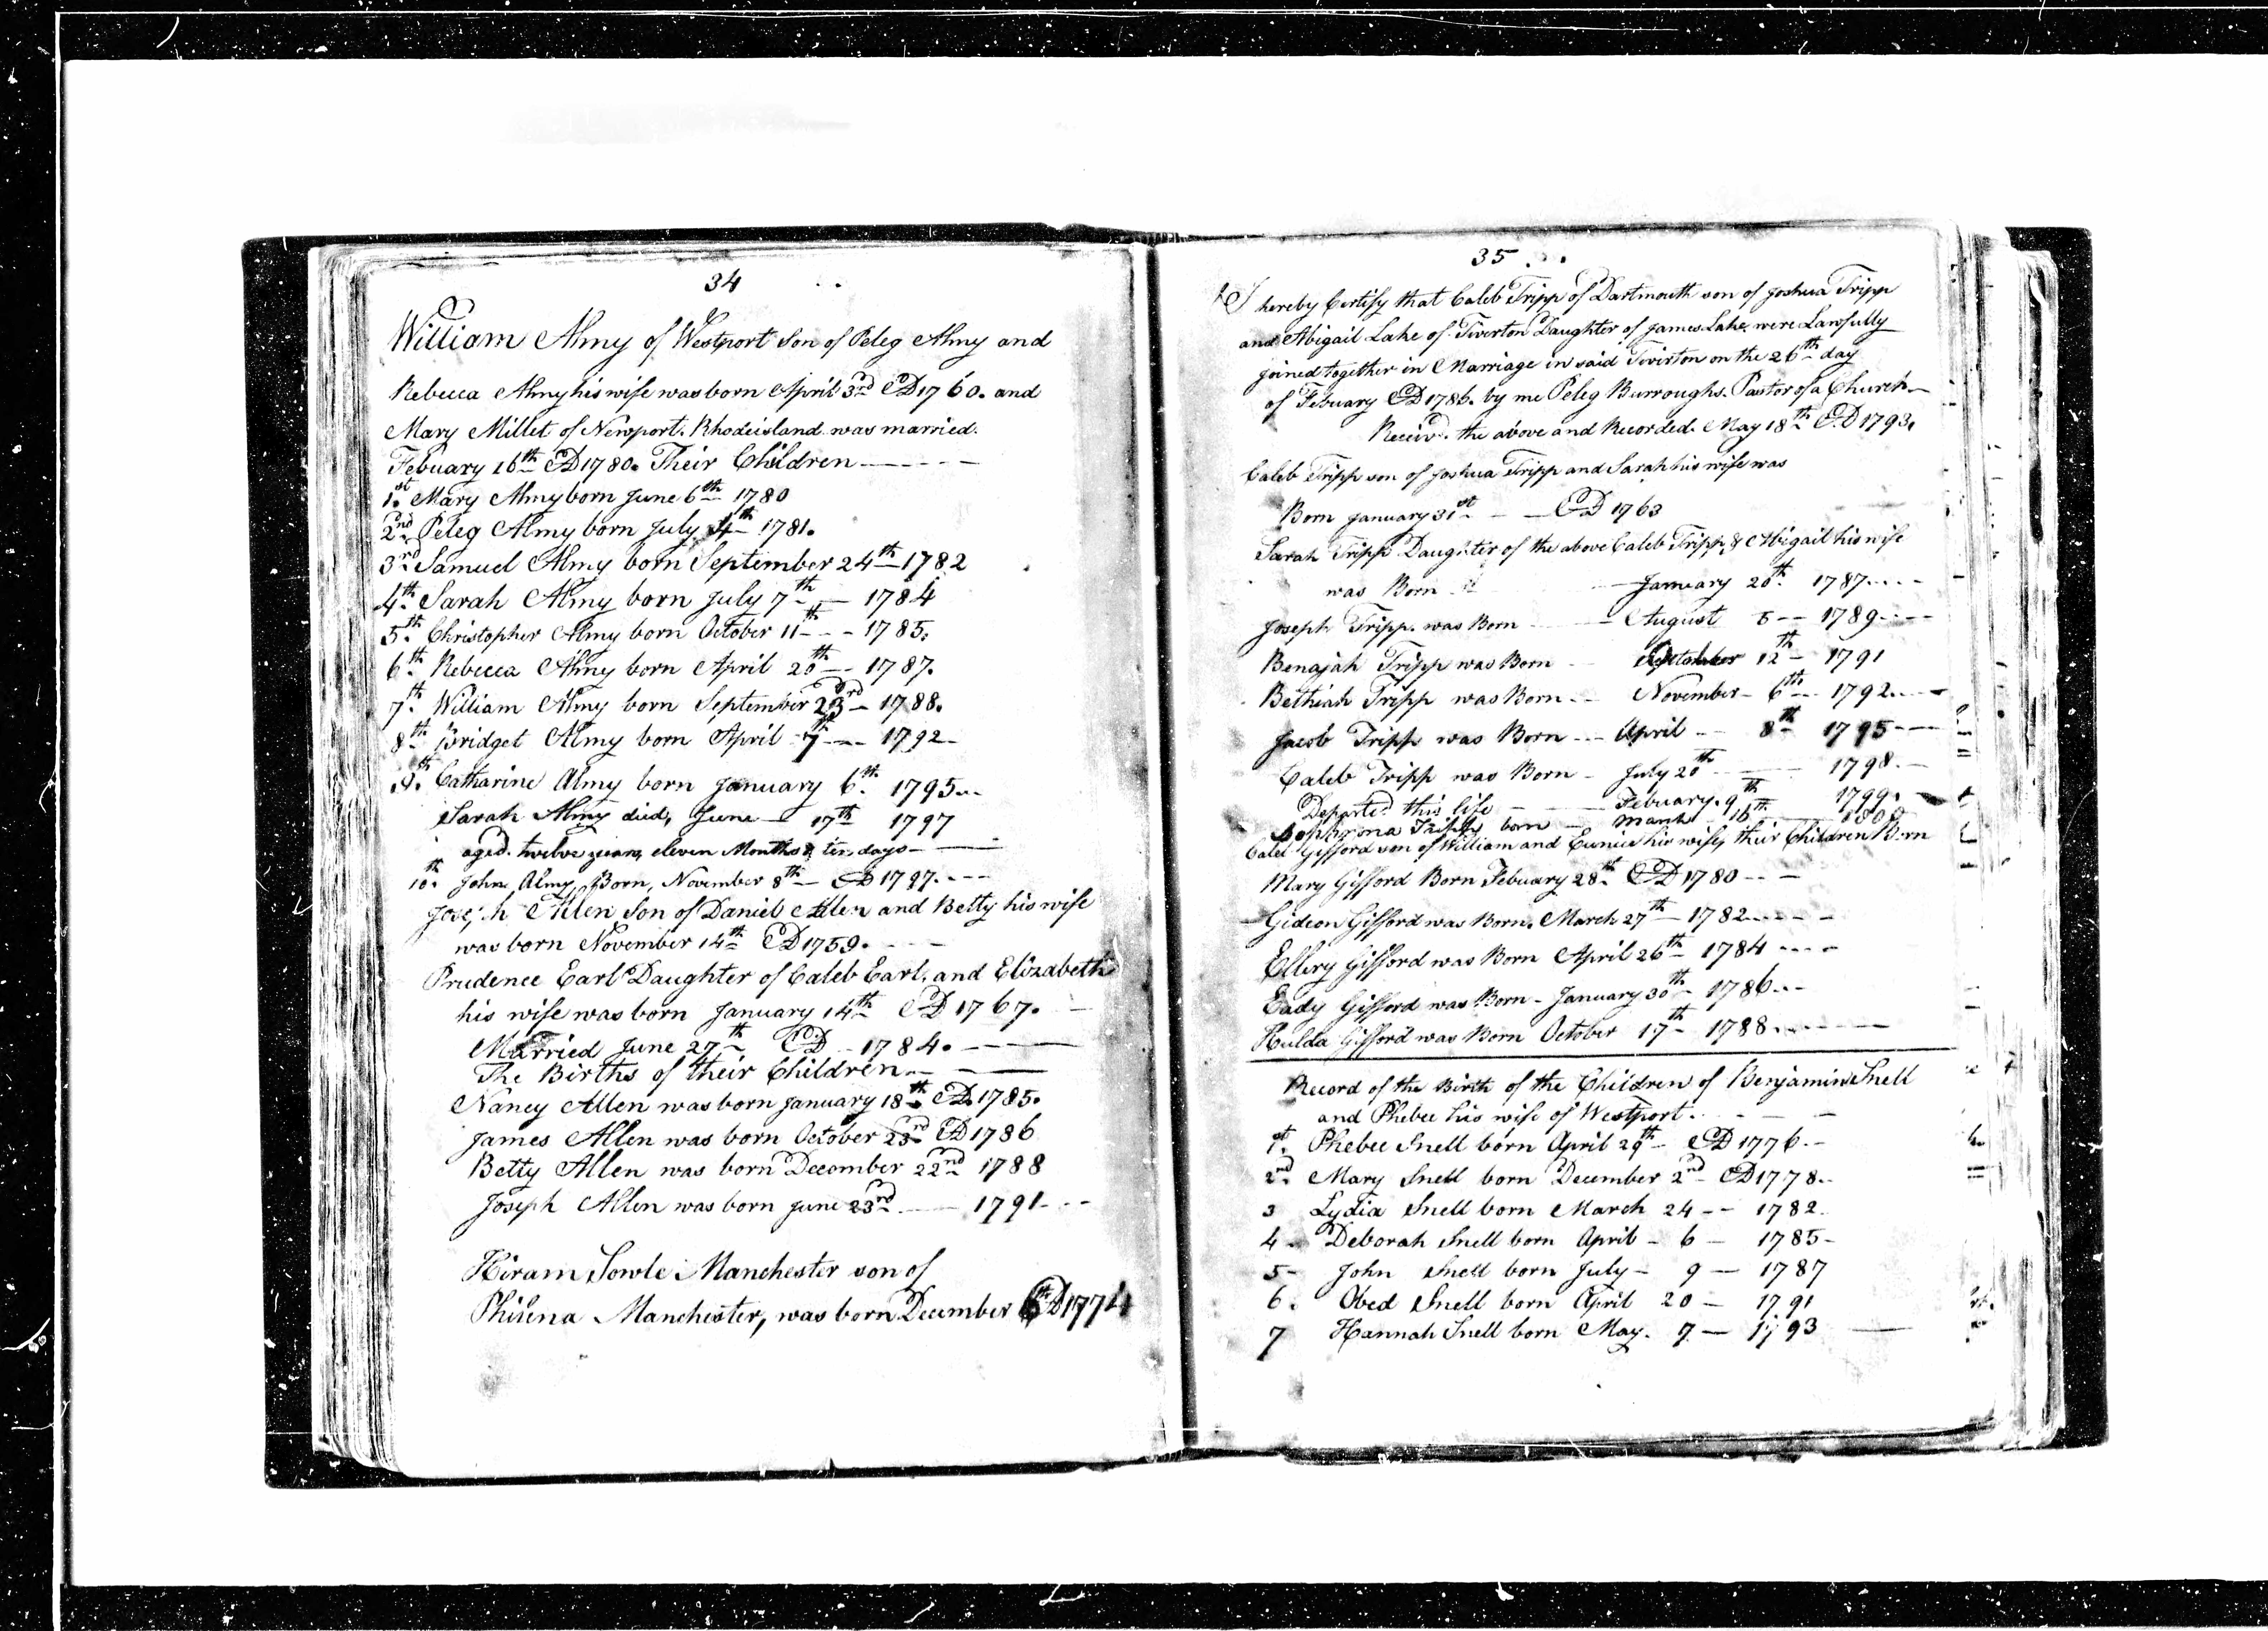 34
William Almy of Westport Son of Peleg Almy and
Rebecca Almy his wife was born April 3rd AD 1760. and
Mary Millet of Newport. Rhodeisland was married.
Febuary 16th AD 1780. Their Children
1st. Mary Almy born June 6th 1780
2nd. Peleg Almy born July 4th 1781.
3rd Samuel Almy born September 24th 1782
4th. Sarah Almy born July 7th 1784
5th. Christopher Almy born October 11th 1785.
6th Rebecca Almy born April 20th 1787.
7th. William Almy born September 23rd 1788.
8th Bridget Almy born April 7th 1792
9th. Catharine Almy born January 6th. 1795
Sarah Almy died, June 17th 1797
aged twelve years, eleven Months & ten days
10th. John Almy, Born, November 8th AD 1797.
Joseph Allen Son of Daniel Allen and Betty his wife
was born November 14th AD 1759.
Prudence Earl Daughter of Caleb Earl. and Elizabeth
his wife was born January 14th AD 1767.
Married June 27th AD 1784.
The Births of their Children
Nancy Allen was born January 18th AD 1785.
James Allen was born October 23rd AD 1786
Betty Allen was born December 22nd 1788
Joseph Allen was born June 23rd 1791
Hiram Sowle Manchester son of
Philena Manchester, was born December 6th AD 1774
35
I hereby Certify that Caleb Tripp of Dartmouth son of Joshua Tripp
and Abigail Lake of Tiverton Daughter of James Lake were Lawfully
joined together in Marriage in said Tivirton on the 26th day
of Febuary AD 1786. by me Peleg Burroughs. Pastor of a Church
Receivd. the above and Recorded. May 18th AD 1793.
Caleb Tripp son of Joshua Tripp and Sarah his wife was
Born January 31st AD 1763
Sarah Tripp Daughter of the above Caleb Tripp & Abigail his wife
was Born January 20th. 1787
Joseph Tripp. was Born August 5 1789
Benajah Tripp was Born September 12th 1791
Bethiah Tripp was Born November 6th 1792
Jacob Tripp was Born April 8th 1795
Caleb Tripp was Born July 20th 1798
Departed this life Febuary. 9th 1799.
Sophrona Tripp born March 16th 1800
Caleb Gifford son of William and Eunice his wife, their Children Born
Mary Gifford Born Febuary 28th. AD 1780
Gideon Gifford was Born. March 27th 1782
Ellery Gifford was Born April 26th 1784
Eady Gifford was Born January 30th 1786
Hulda Gifford was Born October 17th 1788
Record of the Birth of the Children of Benjamin Snell
and Phebee his wife of Westport.
1st. Phebee Snell born April 29th AD 1776
2nd. Mary Snell born December 2nd AD 1778
3 Lydia Snell born March 24 1782
4 Deborah Snell born April 6 1785
5 John Snell born July 9 1787
6. Obed Snell born April 20 1791
7 Hannah Snell born May. 7 1793